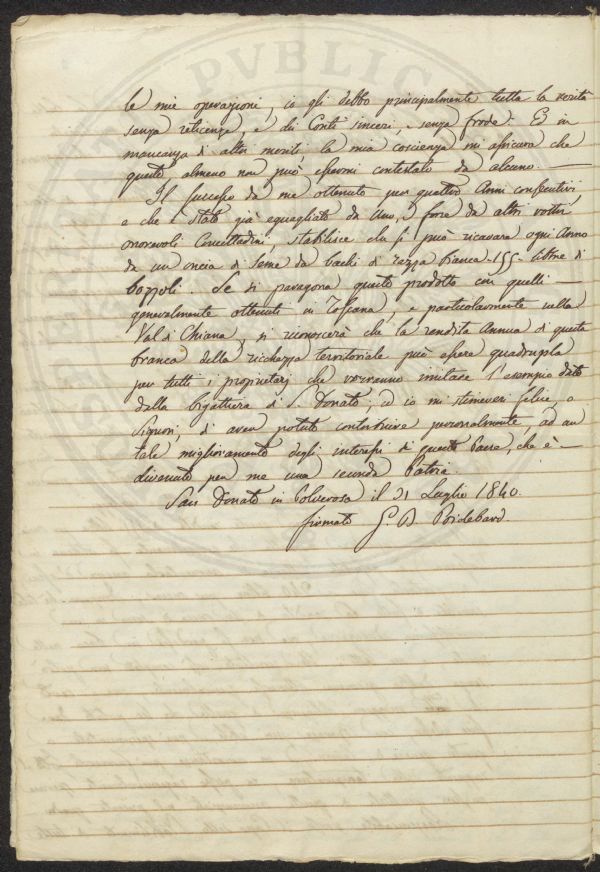 le mie operazioni, io gli debbo principalmente tutta la verità
senza reticenze, e dei Conti sinceri, e senza frode. Ed in
mancanza di altri meriti, la mia coscienza mi assicura che
questo, almeno non può essermi contestato da alcuno. —
Il successo da me ottenuto per quattro Anni consecutivi,
e che è stato già eguagliato da uno, e forse da altri vostri
onorevoli Concittadini, stabilisce che si può ricavare ogni Anno
da un oncia di seme da bachi di razza bianca 155 libbre di
bozzoli. Se si paragona questo prodotto con quelli —
generalmente ottenuti in Toscana, e particolarmente nella
Val di Chiana, si riconoscerà che la rendita Annua di questa
branca della ricchezza territoriale può essere quadrupla
per tutti i proprietarj che vorranno imitare l'esempio dato
dalla bigattiera di S. Donato, ed io mi stimerei felice o
Signori, di aver potuto contribuire personalmente, ad un
tale miglioramento degli interessi di questo Paese, che è —
divenuto per me una seconda Patria.
San Donato in Polverosa il 21 Luglio 1840.
firmato G. B.
PVBLIC